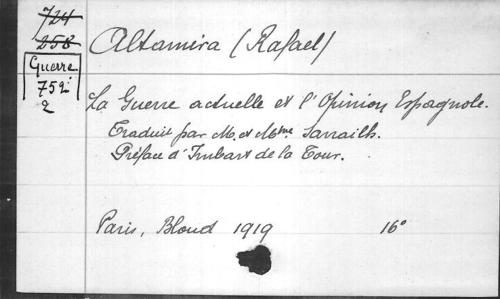 724
258
Guerre
752
2
Altamira (Rafael)
La Guerre actuelle et l'Opinion Espagnole.
Traduit par M. et Mme Sarrailh.
Préface d'Imbart de la Tour.
Paris, Bloud 1919 16°